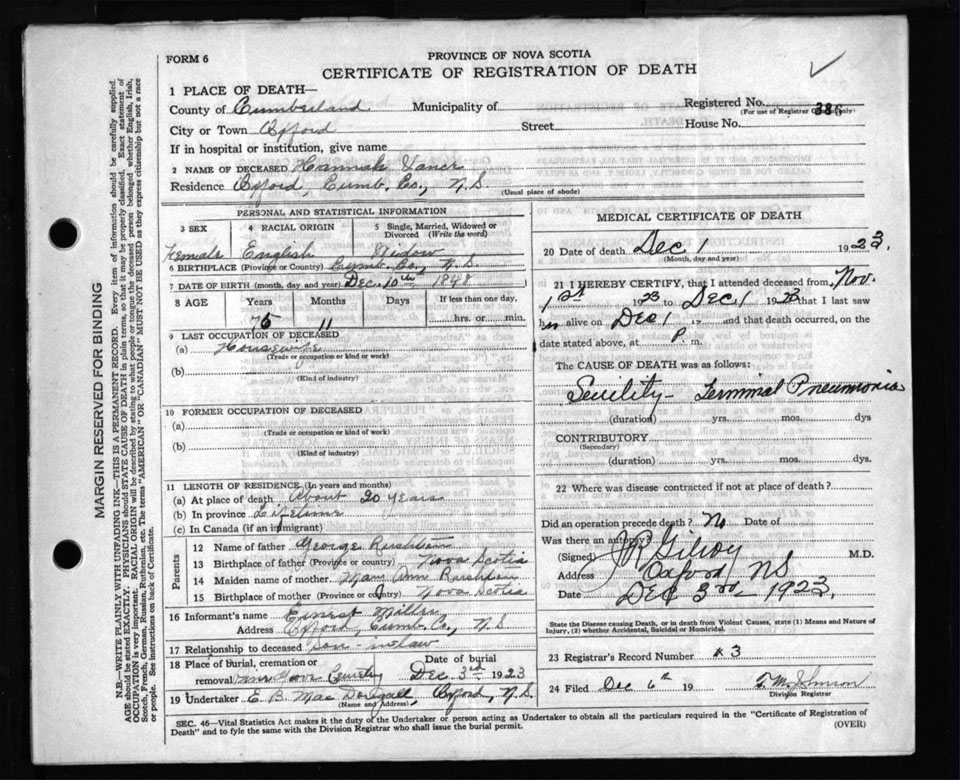 FORM 6
PROVINCE OF NOVA SCOTIA
CERTIFICATE OF REGISTRATION OF DEATH
1 PLACE OF DEATH—
County of Cumberland Municipality of Registered No. 386
(For use of Registrar only)
City or Town Oxford Street House No.
If in hospital or institution, give name
2 NAME OF DECEASED Hannah
Residence Oxford, Cumb. Co., N.S.
(Usual place of abode)
PERSONAL AND STATISTICAL INFORMATION
3 SEX 4 RACIAL ORIGIN 5 Single, Married, Widowed or Divorced (Write the word)
Female English Widow
6 BIRTHPLACE (Province or Country) Cumb. Co., N.S.
7 DATE OF BIRTH (month, day and year) Dec. 10th 1848
8 AGE Years Months Days If less than one day,
75 11 hrs. or min.
9 LAST OCCUPATION OF DECEASED
(a) Housewife
(Trade or occupation or kind of work)
(b)
(Kind of industry)
10 FORMER OCCUPATION OF DECEASED
(a)
(Trade or occupation or kind of work)
(b)
(Kind of industry)
11 LENGTH OF RESIDENCE (In years and months)
(a) At place of death About 20 years
(b) In province Lifetime
(c) In Canada (if an immigrant)
Parents
12 Name of father George
13 Birthplace of father (Province or country) Nova Scotia
14 Maiden name of mother Mary Ann
15 Birthplace of mother (Province or country) Nova Scotia
16 Informant's name Ernest
Address Oxford, Cumb. Co., N.S.
17 Relationship to deceased son-in-law
18 Place of burial, cremation or Date of burial
removal Cemetery Dec. 3rd 1923
19 Undertaker E. B. MacDougall Oxford, N.S.
(Name and Address)
MEDICAL CERTIFICATE OF DEATH
20 Date of death Dec 1 1923.
(Month, day and year)
21 I HEREBY CERTIFY, that I attended deceased from Nov.
1st 1923 to Dec. 1 1923 that I last saw
her alive on Dec 1 and that death occurred, on the
date stated above, at P. m.
The CAUSE OF DEATH was as follows:
Senility - Terminal Pneumonia
(duration) yrs. mos. dys
CONTRIBUTORY
(Secondary)
(duration) yrs. mos. dys.
22 Where was disease contracted if not at place of death?
Did an operation precede death? No Date of
Was there an autopsy?
(Signed) Gilroy M.D.
Address Oxford NS
Date Dec 3rd 1923.
State the Disease causing Death, or in death from Violent Causes, state (1) Means and Nature of
Injury, (2) whether Accidental, Suicidal or Homicidal.
23 Registrar's Record Number #3
24 Filed Dec 6th 19 Johnson
Division Registrar
SEC. 46—Vital Statistics Act makes it the duty of the Undertaker or person acting as Undertaker to obtain all the particulars required in the "Certificate of Registration of
Death" and to fyle the same with the Division Registrar who shall issue the burial permit.
(OVER)
MARGIN RESERVED FOR BINDING
N.B.—WRITE PLAINLY WITH UNFADING INK—THIS IS A PERMANENT RECORD. Every item of information should be carefully supplied.
AGE should be stated EXACTLY. PHYSICIANS should STATE CAUSE OF DEATH in plain terms, so that it may be properly classified. Exact statement of
OCCUPATION is very important. RACIAL ORIGIN will be described by stating to what people or tongue the deceased person belonged whether English, Irish,
Scotch, French, German, Russian, Ruthenian, etc. The terms "AMERICAN" OR "CANADIAN" MUST NOT BE USED as they express citizenship but not a race
or people. See instructions on back of Certificate.